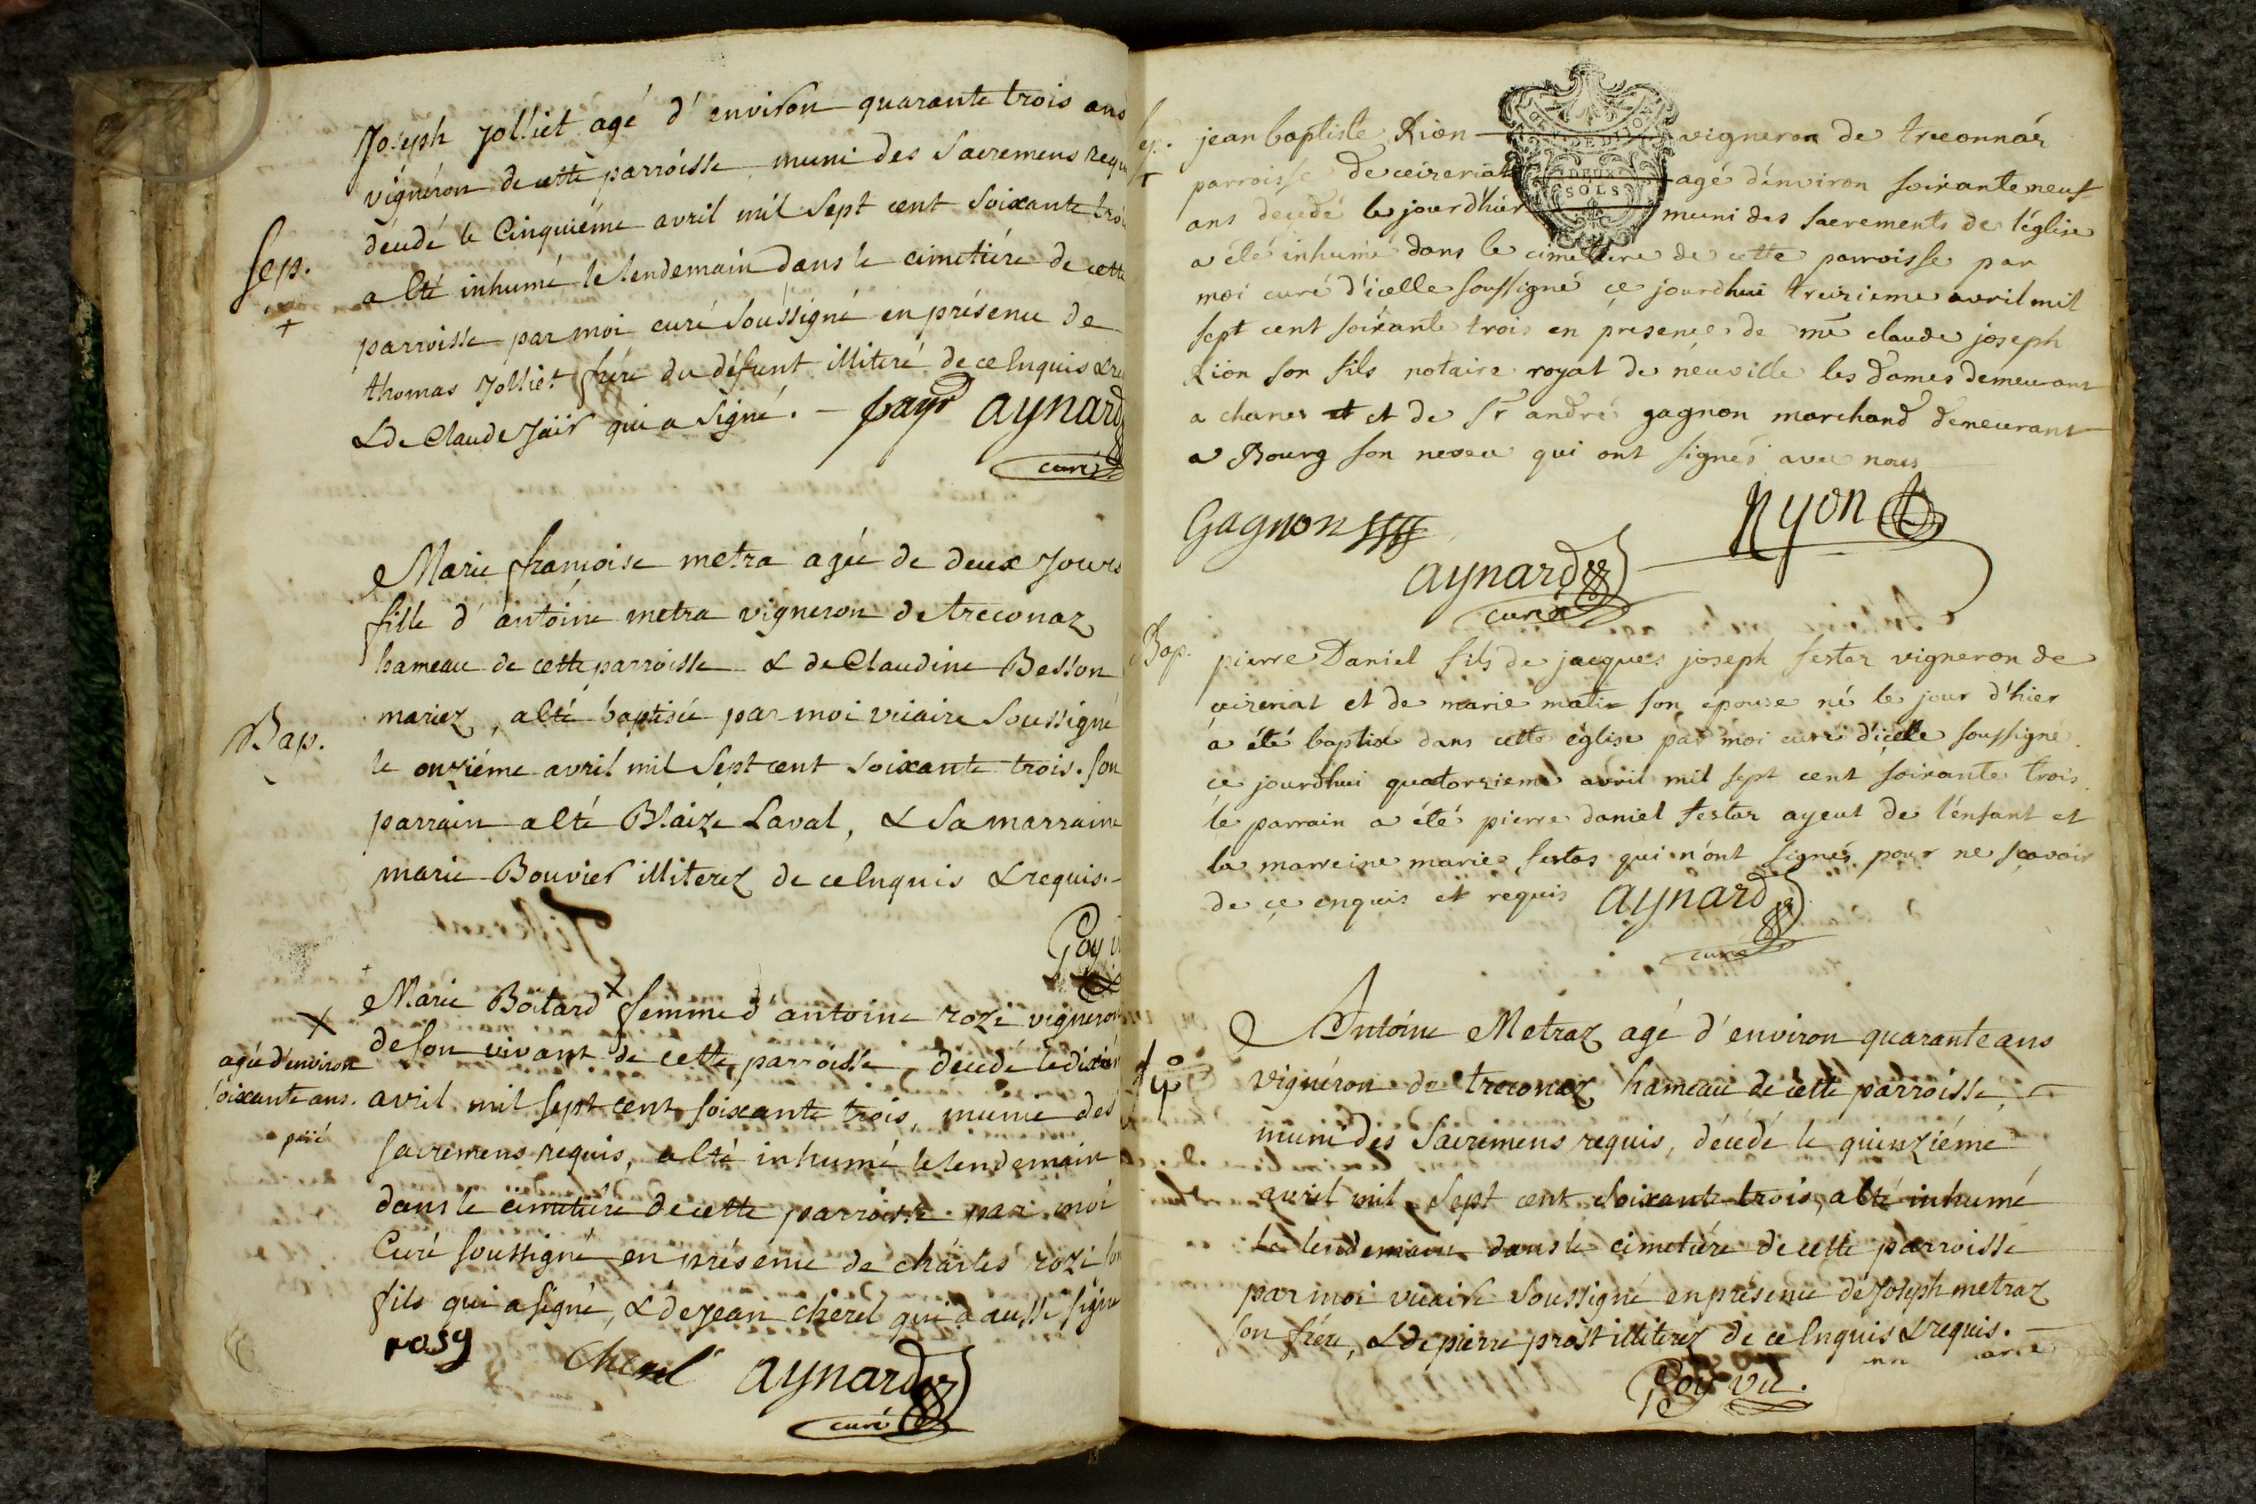 Joseph Jolliet agé d'environ quarante trois ans
vignéron de cette parroisse muni des Sacremens requis
décédé le Cinquiéme avril mil Sept cent Soixante trois
Sep.
a Eté inhumé le lendemain dans le cimetiére de cette
+
parroisse par moi curé Soussigné en présence de
thomas Jolliet frére du défunt illiteré de ce Enquis &
& de Claude Jaïr qui a Signé. — Aynard
curé
Marie françoise metra agée de deux Jours
fille d'antoine metra vigneron de treconaz
hameau de cette parroisse & de Claudine Besson
mariez, a Eté baptisée par moi vicaire Soussigné
Bap.
le onziéme avril mil Sept cent Soixante trois. Son
parrain a Eté Blaize Laval, & Sa marraine
marie Bouvier illiterez de ce Enquis & requis. -
Goy
Marie Boitard x femme d'antoine rozi vigneron
x
de Son vivant de cette parroisse, décédé le
agée d'environ
Soixante ans.
avril mil Sept cent Soixante trois, munie des
Sacremens requis, a Eté inhumé le lendemain
dans le cimetiére de cette parroisse par moi
Curé Soussigné en présence de charles rozi Son
fils qui a Signé, & de Jean cherel qui a aussi Signé
rosy Cherel Aynard
curé
Sep.
jean baptiste Rion vigneron de treconnáz
+
parroisse de ceizeriat agé d'énviron soixante neuf
ans decedé le jour d'hier muni des sacrements de l'église
DEUX
SOLS
a été inhumé dans le cimettiere de cette parroisse par
moi curé d'icelle soussigné ce jourdhui treizieme avril mil
sept cent soixante trois en presence de me claude joseph
Rion son fils notaire royal de néuville les dames demeurant
a chanes et et de sr andré gagnon marchand demeurant
a Bourg son neveu qui ont signés avec nous
Gagnon Ryon
Aynard
curé
Bap.
pierre Daniel fils de jacques joseph festaz vigneron de
ceizeriat et de marie matin son épouse né le jour d'hier
a été baptisé dans cette église par moi curé d'icelle soussigné
ce jourdhui quatorzieme avril mil sept cent soixante trois
le parrain a été pierre daniel festaz ayeul de l'énfant et
la marreine marie festas qui n'ónt signés pour ne sçavoir
de çe enquis et requis Aynard
curé
Antoine Metraz agé d'environ quarante ans
vignéron de treconaz hameau de cette parroisse,
muni des Sacremens requis, décédé le quinziéme
avril mil Sept cent Soixante trois, a Eté inhumé
Le lendemain dans le cimetiére de cette parroisse
par moi vicaire Soussigné en présence de Joseph metraz
Son frére, & de pierre prost illiterez de ce Enquis & requis. —
Goy vic.